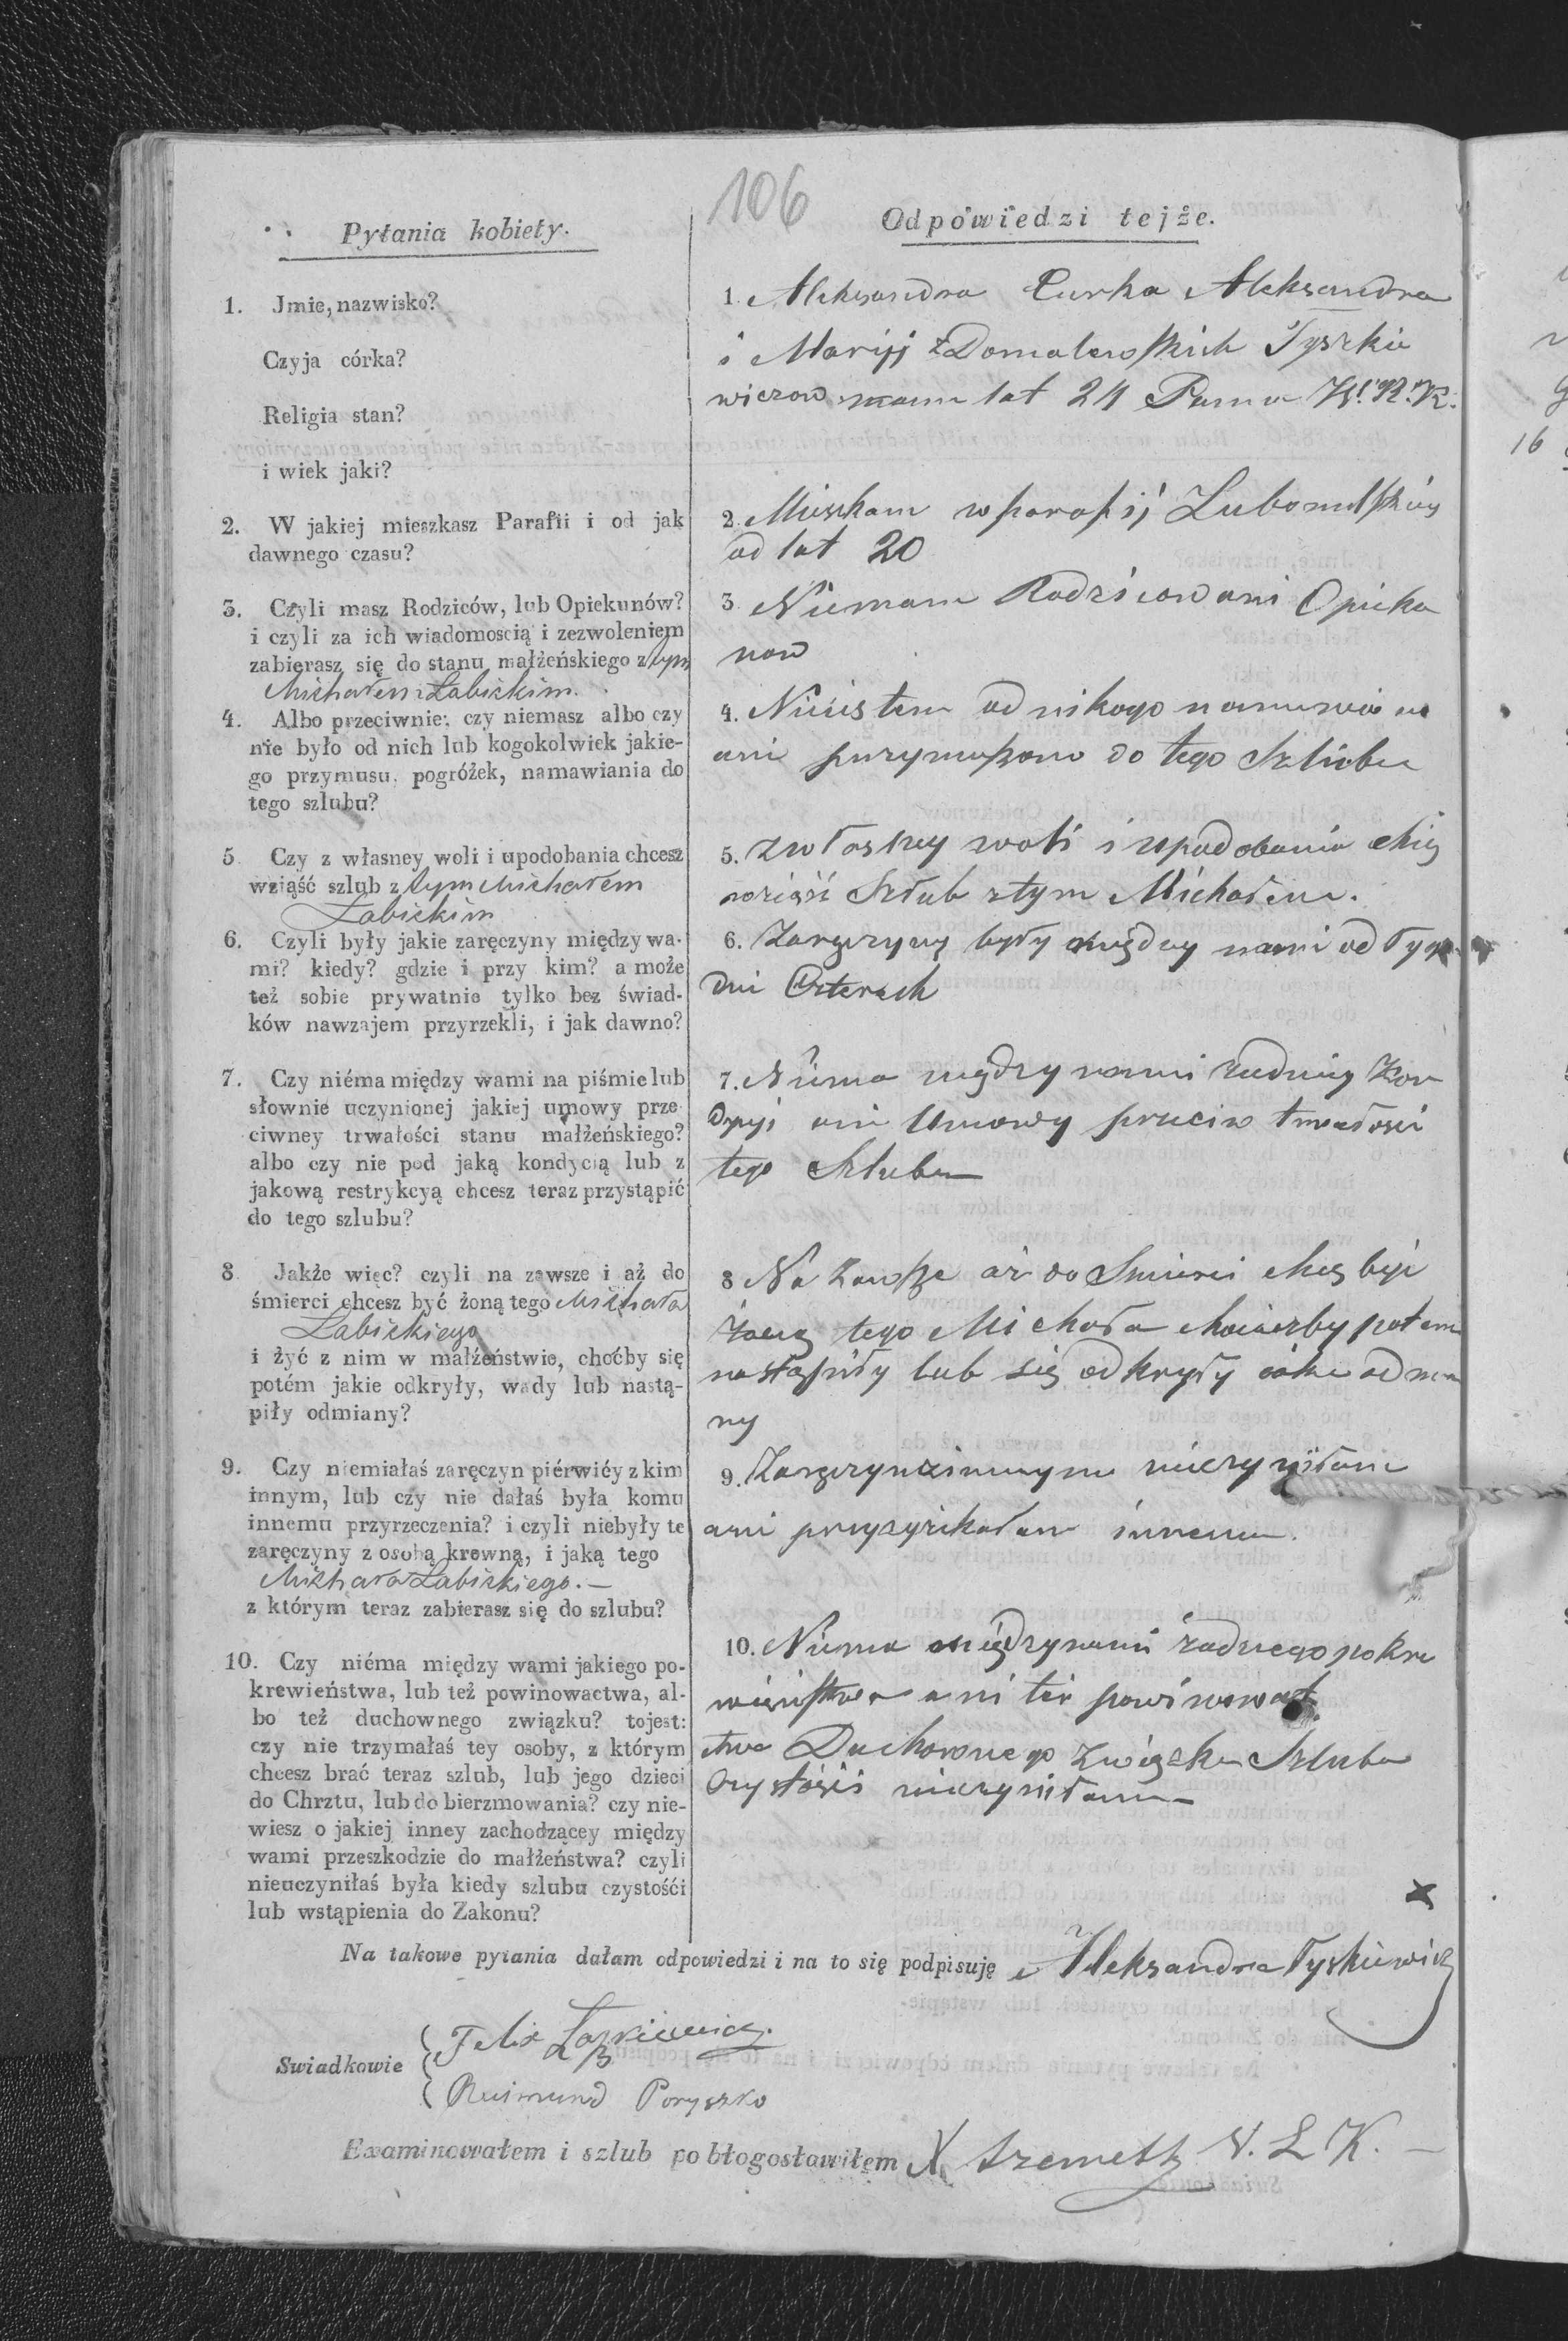 106
Pytania kobiety.
1. Jmie, nazwisko?
Czyja córka?
Religia stan?
i wiek jaki?
2. W jakiej mieszkasz Parafii i od jak
dawnego czasu?
3. Czyli masz Rodziców, lub Opiekunów?
i czyli za ich wiadomoscią i zezwoleniem
zabierasz się do stanu małżeńskiego z tym
Michałem Łabickim.
4. Albo przeciwnie: czy niemasz albo czy
nie było od nich lub kogokolwiek jakie-
go przymusu, pogróżek, namawiania do
tego szlubu?
5 Czy z własney woli i upodobania chcesz
wziąść szlub z tym Michałem
Łabickim
6. Czyli były jakie zaręczyny między wa-
mi? kiedy? gdzie i przy kim? a może
też sobie prywatnie tylko bez świad-
ków nawzajem przyrzekli, i jak dawno?
7. Czy niéma między wami na piśmie lub
słownie uczynionej jakiej umowy prze
ciwney trwałości stanu małżeńskiego?
albo czy nie pod jaką kondycią lub z
jakową restrykcyą chcesz teraz przystąpić
do tego szlubu?
8 Jakże więc? czyli na zawsze i aż do
śmierci chcesz być żoną tego Michała
Łabickiego
i żyć z nim w małżeństwie, choćby się
potém jakie odkryły, wady lub nastą-
piły odmiany?
9. Czy niemiałaś zaręczyn piérwiéy z kim
innym, lub czy nie dałaś była komu
innemu przyrzeczenia? i czyli niebyły te
zaręczyny z osobą krewną, i jaką tego
Michała Łabickiego.—
z którym teraz zabierasz się do szlubu?
10. Czy niéma między wami jakiego po-
krewieństwa, lub też powinowactwa, al-
bo też duchownego związku? tojest:
czy nie trzymałaś tey osoby, z którym
chcesz brać teraz szlub, lub jego dzieci
do Chrztu, lub do bierzmowania? czy nie-
wiesz o jakiej inney zachodzącey między
wami przeszkodzie do małżeństwa? czyli
nieuczyniłaś była kiedy szlubu czystośći
lub wstąpienia do Zakonu?
Odpowiedzi tejże.
1. Aleksandra Curka Aleksandra
i Maryj z Domalewskich Tyszkie
wiczow mam lat 24 Panna W. R. K.
2. Mieszkam w parafij
od lat 20
3 Niemam Rodzicow ani Opieku
now
4. Niiestem od nikogo namuwiona
ani przymuszono do tego Szlubu
5. z własney woli i upodobania chcę
wziąść Szlub z tym Michałem.
6. Zaręczyny były między nami od Tygo
dni Czterech
7. Niema między nami żadniey Kon
dycyi ani Umowy przeciw trwałości
tego Szlubu
8 Na Zawsze aż do Smierci chcę być
żoną tego Michała chociażby potem
nastąpiły lub się odkryły jakie odmia
ny
9. Zaręczyn z innym nieczyniłam
ani przyżyrikałam innemu.
10. Niema między nami żadnego pokre
wieństwa ani też powinowact
twa Duchownego związku Szlubu
Czystości nieczyniłam
Na takowe pytania dałam odpowiedzi i na to się podpisuję Aleksandra Tyszkiewicz
Swiadkowie
Felix Łaszkiewicz.
Reimund Poryszko
Examinowałem i szlub pobłogosławiłem X Szemett W. L K. —